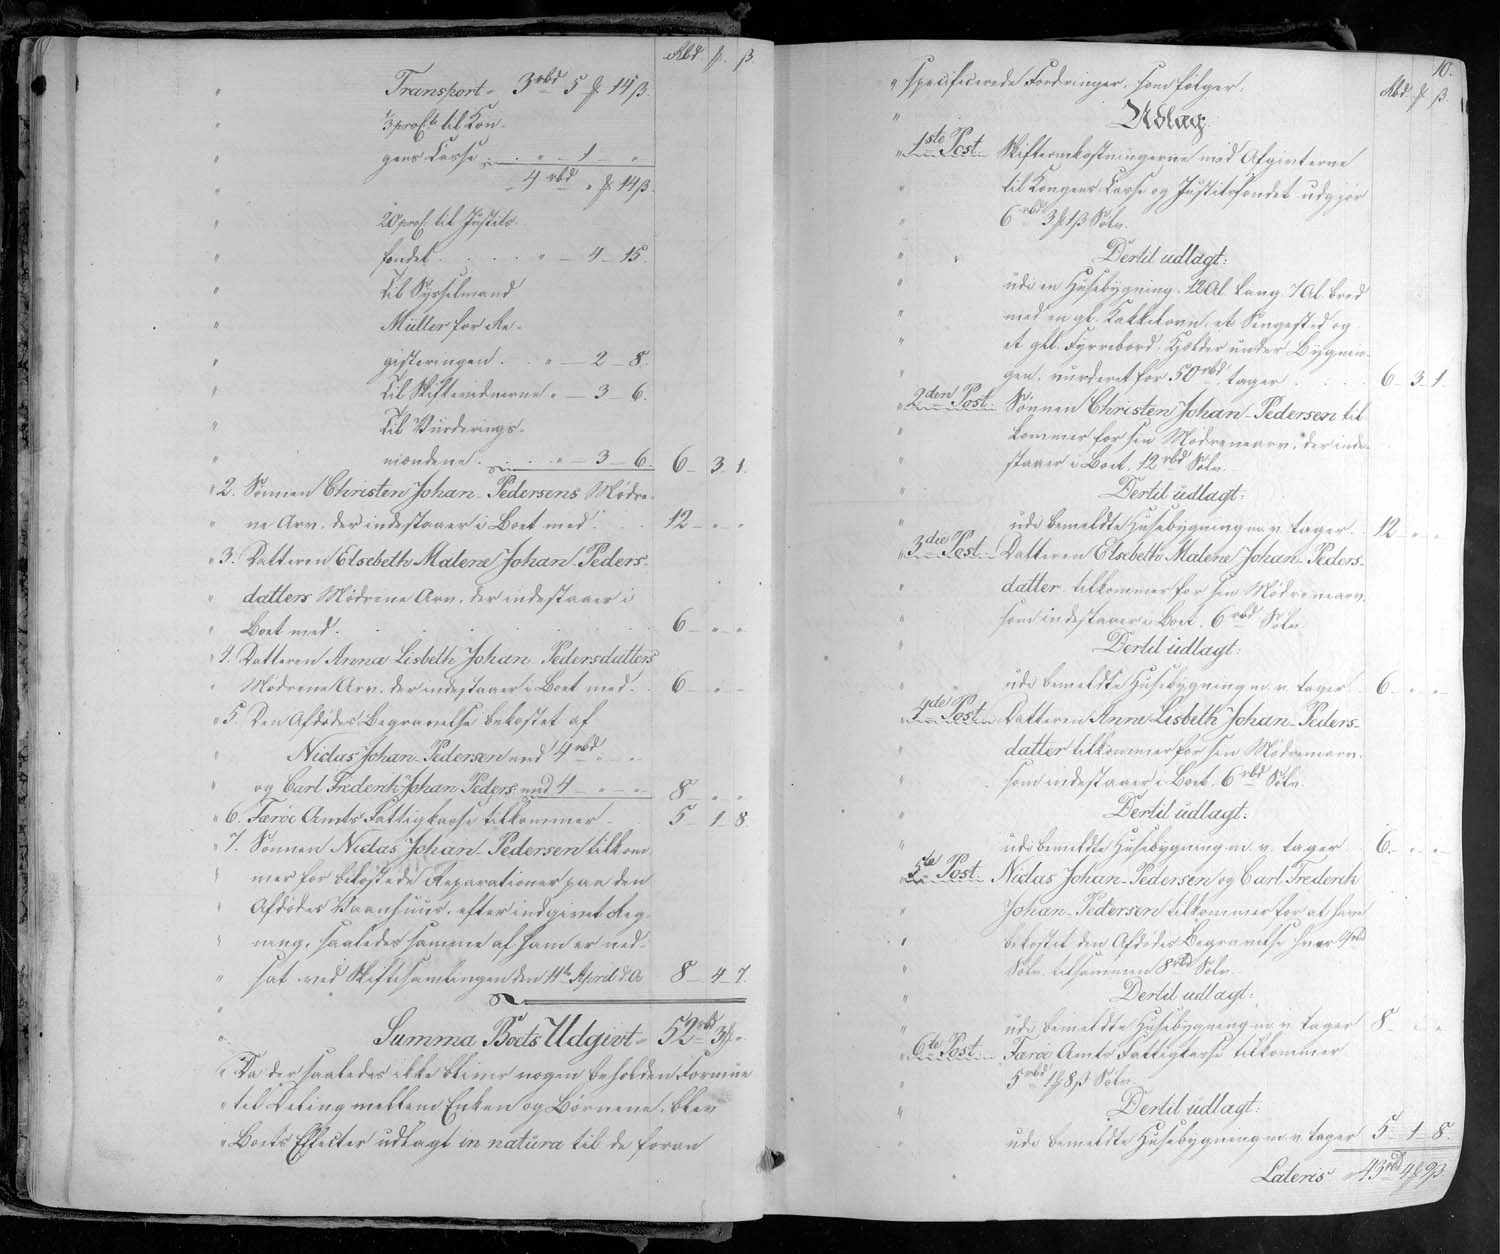 Rbd ℳ. ß.
Transport 3 rbd 5 ℳ 14 ß.
1/3 proC. til Kon-
gens Casse . . „ – 1 – „
4 rbd „ ℳ 14 ß.
20 proC. til Justits-
fondet . . . . „ – 4 – 15.
Til Sysselmand
Müller for Re-
gisteringen . . „ – 2 – 8.
Til Skiftevidnerne „ – 3 – 6.
Til Vurderings-
mændene . . . „ – 3 – 6. 6 – 3 – 1.
2. Sønnen Christen Johan Pedersens Mødre-
ne Arv, der indestaaer i Boet med . . . 12 – „ – „
3. Datteren Elsebeth Malene Johan Peders-
datters Mødrene Arv, der indestaaer i
Boet med . . . 6 – „ – „
4. Datteren Anna Lisbeth Johan Pedersdatters
Mødrene Arv, der indestaaer i Boet med . . 6 – „ – „
5. Den Afdødes Begravelse bekostet af
Niclas Johan Pedersen med 4 rbd „ – „
og Carl Frederik Johan Peders. med 4 – „ – „ 8 – „ – „
6. Færøe Amts Fattigkasse tilkommer . 5 – 1 – 8.
7. Sønnen Niclas Johan Pedersen tilkom-
mer for bekostede Reparationer paa den
Afdødes Vaanhuus, efter indgivet Reg-
ning, saaledes samme af ham er ned-
sat ved Skiftesamlingen den 11te April d. A. 8 – 4 – 7.
Summa Boets Udgivt 52 rbd 3 ℳ „
Da der saaledes ikke bliver nogen beholden Formue
til Deling mellem Enken og Børnene, blev
Boets Effecter udlagt in natura til de foran
10.
Rbd ℳ ß.
specificerede Fordringer, som følger.
Udlæg
1ste Post Skifteomkostningerne med Afgivterne
til Kongens Casse og Justitsfondet udgjør
6 rbd 3 ℳ 1 ß Sølv.
Dertil udlagt:
udi en Husebygning 12 Al. lang 7 Al. bred
med en gl. Kakkelovn, et Sengested og
et gll. Fyrrebord, Kjelder under Bygnin-
gen, vurderet for 50 rbd, tager . . . . 6 – 3 – 1.
2den Post Sønnen Christen Johan Pedersen til-
kommer for sin Mødrenearv, der inde-
staaer i Boet, 12 rbd Sølv.
Dertil udlagt:
udi bemeldte Husebygning m. v. tager . . 12 – „ – „
3die Post Datteren Elsebeth Malene Johan Peders-
datter tilkommer for sin Mødrenearv,
som indestaaer i Boet, 6 rbd Sølv.
Dertil udlagt:
udi bemeldte Husebygning m. v. tager . . 6 – „ – „
4de Post Datteren Anne Lisbeth Johan Peders-
datter tilkommer for sin Mødrenearv,
som indestaaer i Boet, 6 rbd Sølv.
Dertil udlagt:
udi bemeldte Husebygning m. v. tager . . 6 – „ – „
5te Post Niclas Johan Pedersen og Carl Frederik
Johan Pedersen tilkommer for at have
bekostet den Afdødes Begravelse hver 4 rbd
Sølv, tilsammen 8 rbd Sølv.
Dertil udlagt:
udi bemeldte Husebygning m. v. tager 8 – „ – „
6te Post Færøe Amts Fattigkasse tilkommer
5 rbd 1 ℳ 8 ß Sølv.
Dertil udlagt:
udi bemeldte Husebygning m. v. tager 5 – 1 – 8.
Lateris 43 rbd 4 ℳ 9 ß